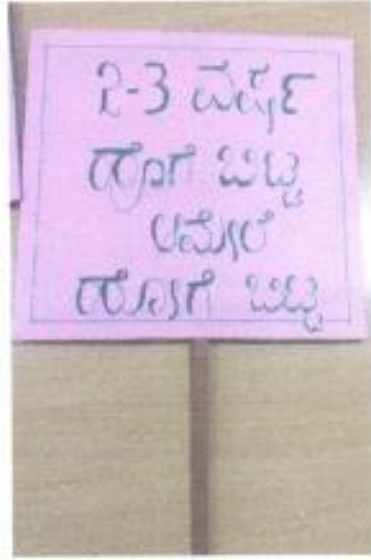 2-3 ವರ್ಷ
ಹೊಗೆ ಬಿಟ್ಟ
ಆಮೇಲೆ
ಹೋಗೆ ಬಿಟ್ಟ